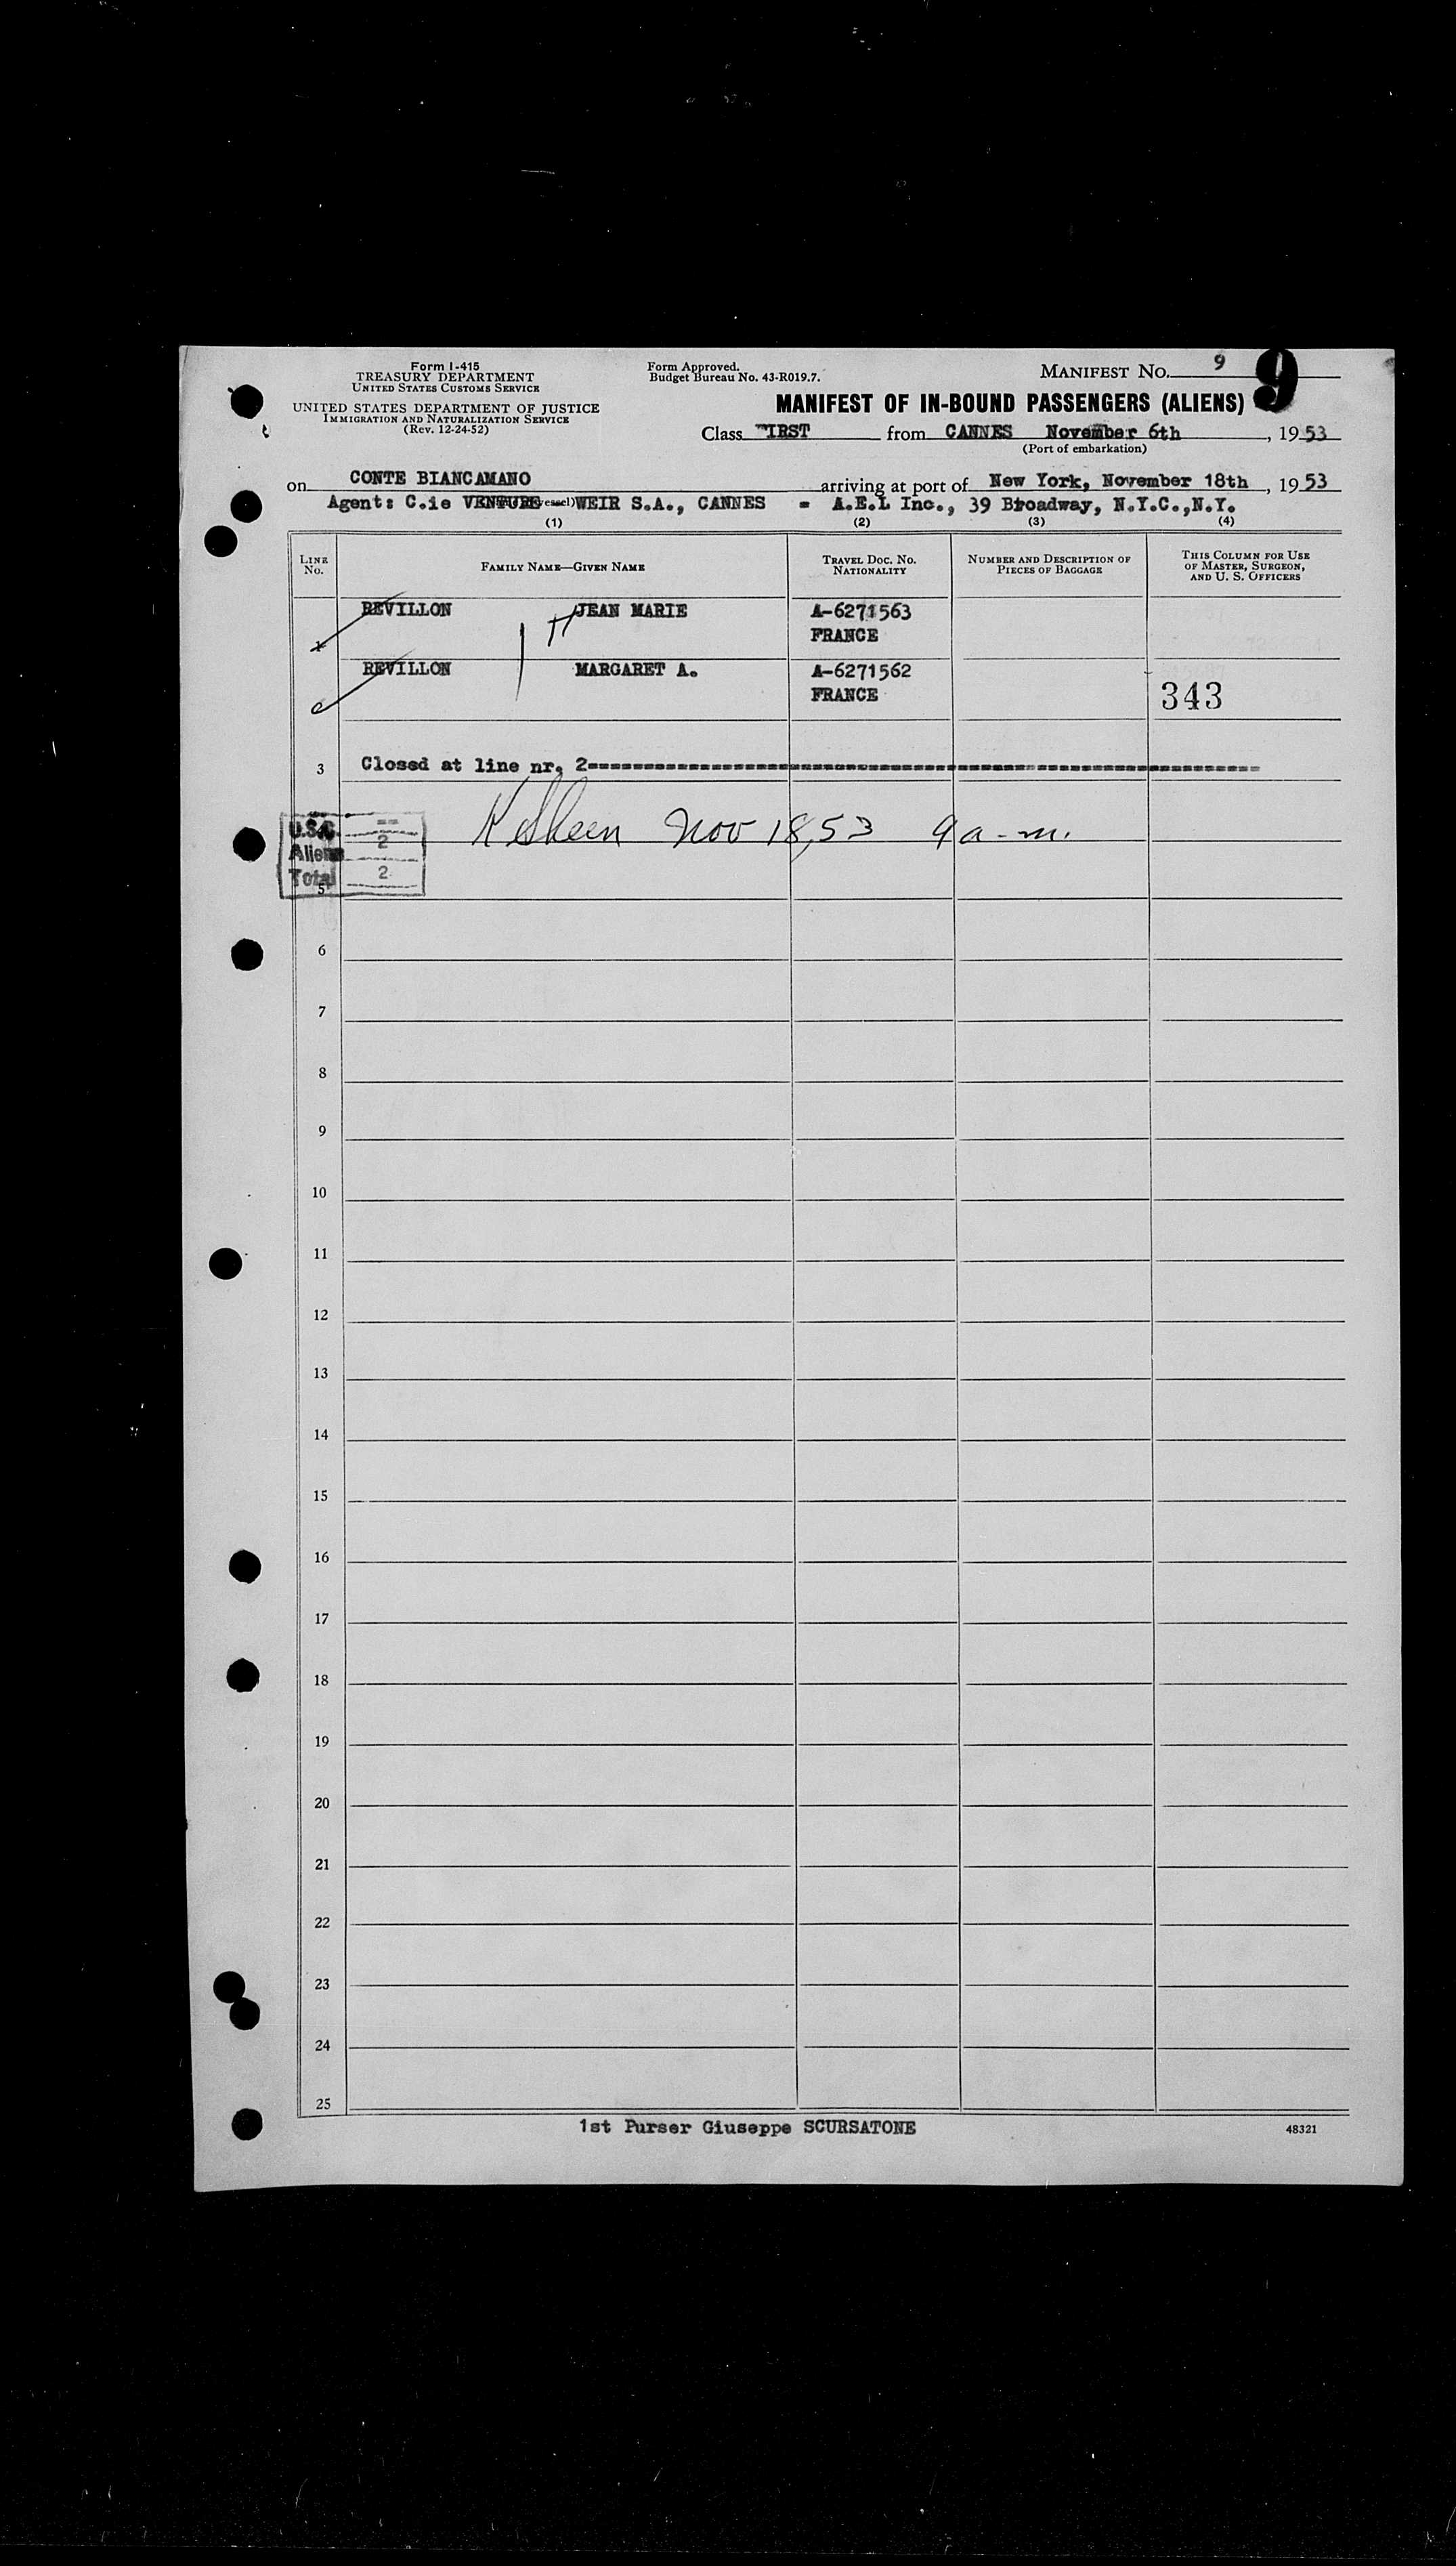 Form I-415
TREASURY DEPARTMENT
UNITED STATES CUSTOMS SERVICE
UNITED STATES DEPARTMENT OF JUSTICE
IMMIGRATION AND NATURALIZATION SERVICE
(Rev. 12-24-52)
Form Approved.
Budget Bureau No. 43-R019.7.
MANIFEST No. 9
9
MANIFEST OF IN-BOUND PASSENGERS (ALIENS)
Class FIRST from CANNES November 6th, 1953
(Port of embarkation)
on CONTE BIANCAMANO arriving at port of New York, November 18th, 1953
Agent: C.ie VENTURE WEIR S.A., CANNES - A.E.L Inc., 39 Broadway, N.Y.C.,N.Y.
(1) (2) (3) (4)
LINE No. FAMILY NAME—GIVEN NAME TRAVEL DOC. NO. NATIONALITY NUMBER AND DESCRIPTION OF PIECES OF BAGGAGE THIS COLUMN FOR USE OF MASTER, SURGEON, AND U. S. OFFICERS
1 REVILLON JEAN MARIE A-6271563
FRANCE
REVILLON MARGARET A. A-6271562
FRANCE 343
3 Closed at line nr. 2
Nov 18, 53 9 a-m.
U.S.C. --
Aliens 2
Total 2
5
6
7
8
9
10
11
12
13
14
15
16
17
18
19
20
21
22
23
24
25
1st Purser Giuseppe SCURSATONE
48321